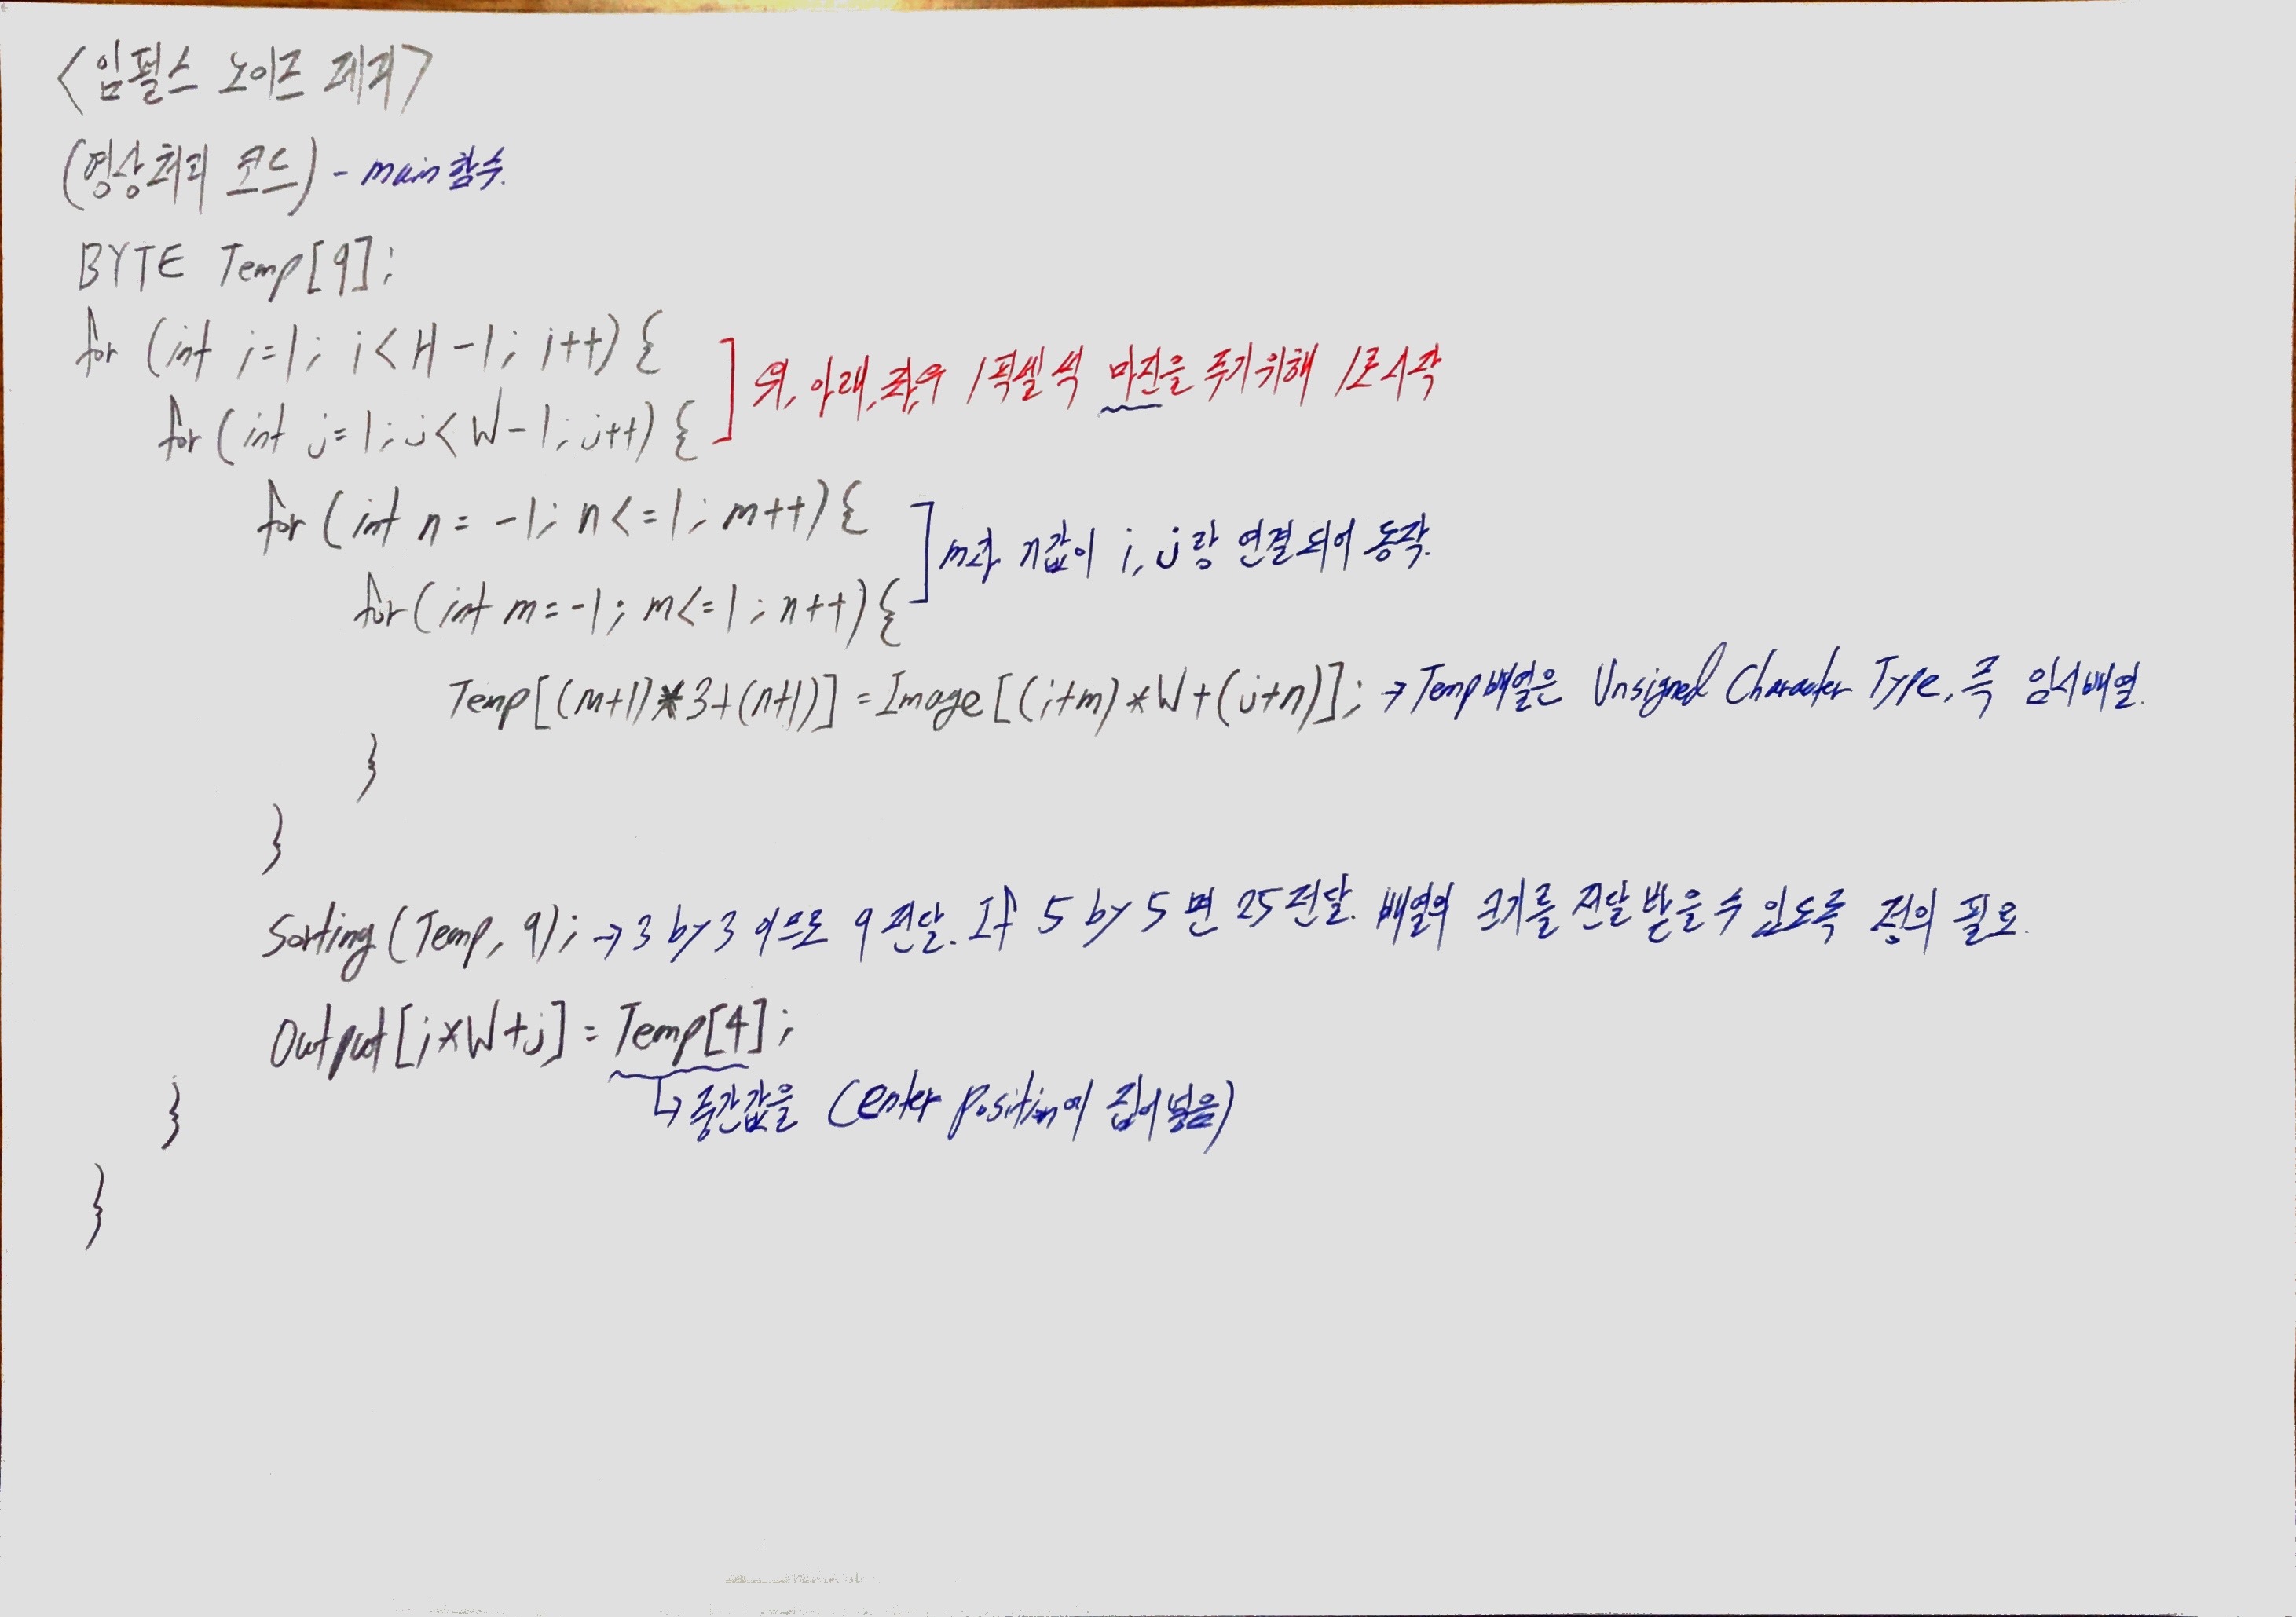 <임펄스 노이즈 제거>
(영상처리 코드) - main함수.
BYTE Temp[9];
for (int i=1; i<H-1; i++) { ] 위, 아래, 좌,우 1픽셀씩 마진을 주기위해 1로시작
for (int j=1; j<W-1; j++) {
for (int n = -1; n<=1; m++) { ] m과 n값이 i, j랑 연결되어 동작.
for (int m=-1; m<=1; n++) {
Temp[(m+1)*3+(n+1)] = Image[(i+m)*W+(j+n)]; → Temp배열은 Unsigned Character Type, 즉 임시배열.
}
}
Sorting (Temp, 9); → 3 by 3 이므로 9 전달. If 5 by 5 면 25 전달. 배열의 크기를 전달 받을 수 있도록 정의 필요.
Output[i*W+j] = Temp[4];
↳ 중간값을 (Center Position에 집어넣음)
}
}